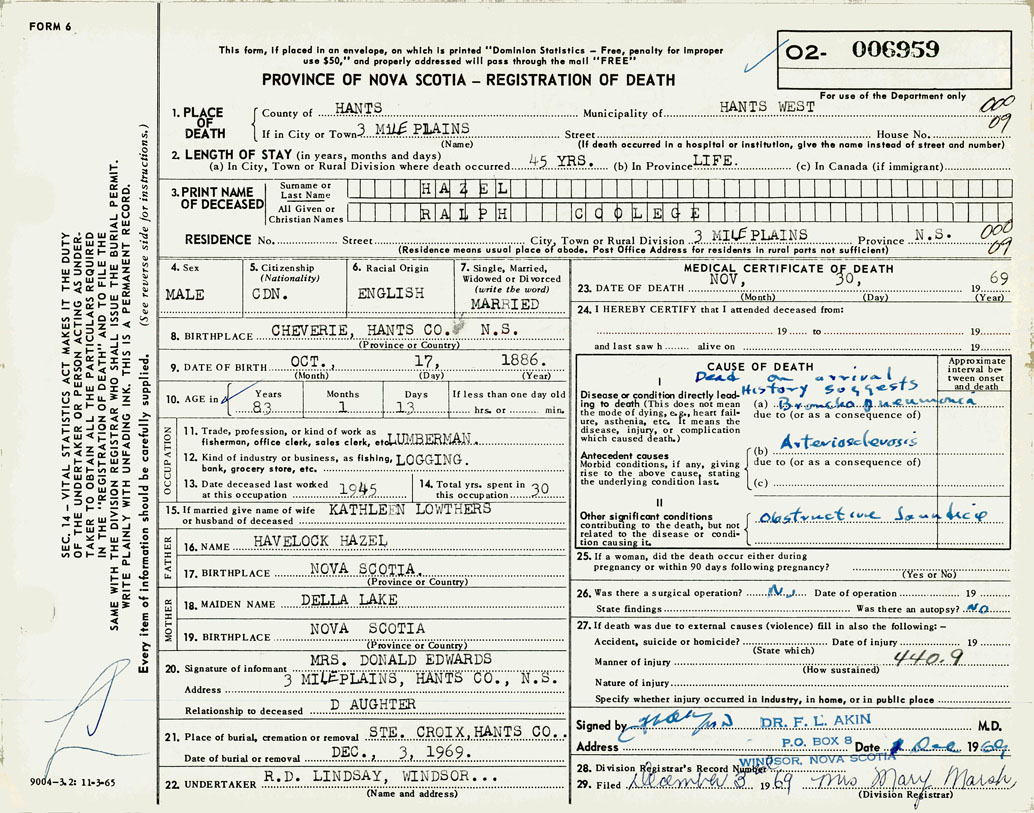 FORM 6
This form, if placed in an envelope, on which is printed "Dominion Statistics – Free, penalty for improper
use $50," and properly addressed will pass through the mail "FREE"
02- 006959
For use of the Department only
PROVINCE OF NOVA SCOTIA – REGISTRATION OF DEATH
000
09
1. PLACE OF DEATH County of HANTS Municipality of HANTS WEST
If in City or Town 3 MILE PLAINS Street House No.
(Name) (If death occurred in a hospital or institution, give the name instead of street and number)
2. LENGTH OF STAY (in years, months and days)
(a) In City, Town or Rural Division where death occurred 45 YRS. (b) In Province LIFE. (c) In Canada (if immigrant)
3. PRINT NAME OF DECEASED
Surname or Last Name HAZEL
All Given or Christian Names RALPH COOLEGE
RESIDENCE No. Street City, Town or Rural Division 3 MILE PLAINS Province N.S.
(Residence means usual place of abode. Post Office Address for residents in rural parts not sufficient)
000
09
4. Sex
MALE
5. Citizenship
(Nationality)
CDN.
6. Racial Origin
ENGLISH
7. Single, Married,
Widowed or Divorced
(write the word)
MARRIED
8. BIRTHPLACE CHEVERIE, HANTS CO. N.S.
(Province or Country)
9. DATE OF BIRTH OCT., 17, 1886.
(Month) (Day) (Year)
10. AGE in
Years Months Days If less than one day old
83 1 13 hrs. or min.
OCCUPATION
11. Trade, profession, or kind of work as
fisherman, office clerk, sales clerk, etc. LUMBERMAN.
12. Kind of industry or business, as fishing,
bank, grocery store, etc. LOGGING.
13. Date deceased last worked
at this occupation 1945
14. Total yrs. spent in
this occupation 30
15. If married give name of wife
or husband of deceased KATHLEEN LOWTHERS
FATHER
16. NAME HAVELOCK HAZEL
17. BIRTHPLACE NOVA SCOTIA.
(Province or Country)
MOTHER
18. MAIDEN NAME DELLA LAKE
19. BIRTHPLACE NOVA SCOTIA
(Province or Country)
20. Signature of informant MRS. DONALD EDWARDS
Address 3 MILE PLAINS, HANTS CO., N.S.
Relationship to deceased D AUGHTER
21. Place of burial, cremation or removal STE. CROIX, HANTS CO..
Date of burial or removal DEC., 3, 1969.
22. UNDERTAKER R.D. LINDSAY, WINDSOR...
(Name and address)
MEDICAL CERTIFICATE OF DEATH
23. DATE OF DEATH NOV, 30, 1969
(Month) (Day) (Year)
24. I HEREBY CERTIFY that I attended deceased from:
19 to 19
and last saw h alive on 19
CAUSE OF DEATH
Approximate
interval be-
tween onset
and death
I
Dead on arrival
History suggests
Disease or condition directly lead-
ing to death (This does not mean
the mode of dying, e.g., heart fail-
ure, asthenia, etc. It means the
disease, injury, or complication
which caused death.)
(a) Bronchopneumonia
due to (or as a consequence of)
Antecedent causes
Morbid conditions, if any, giving
rise to the above cause, stating
the underlying condition last.
(b) Arteriosclerosis
due to (or as a consequence of)
(c)
II
Other significant conditions
contributing to the death, but not
related to the disease or condi-
tion causing it.
Obstructive Jaundice
25. If a woman, did the death occur either during
pregnancy or within 90 days following pregnancy?
(Yes or No)
26. Was there a surgical operation? No Date of operation 19
State findings Was there an autopsy? NO
27. If death was due to external causes (violence) fill in also the following: –
Accident, suicide or homicide? Date of injury 19
(State which)
Manner of injury 440.9
(How sustained)
Nature of injury
Specify whether injury occurred in Industry, in home, or in public place
Signed by M.D.
DR. F. L. AKIN
P.O. BOX 8
WINDSOR, NOVA SCOTIA
Address Date 1 Dec 1969
28. Division Registrar's Record Number
29. Filed December 3 1969 Mrs Mary Marsh
(Division Registrar)
SEC. 14 – VITAL STATISTICS ACT MAKES IT THE DUTY
OF THE UNDERTAKER OR PERSON ACTING AS UNDER-
TAKER TO OBTAIN ALL THE PARTICULARS REQUIRED
IN THE "REGISTRATION OF DEATH" AND TO FILE THE
SAME WITH THE DIVISION REGISTRAR WHO SHALL ISSUE THE BURIAL PERMIT.
WRITE PLAINLY WITH UNFADING INK. THIS IS A PERMANENT RECORD.
Every item of information should be carefully supplied. (See reverse side for instructions.)
9004–3.2: 11-3-65